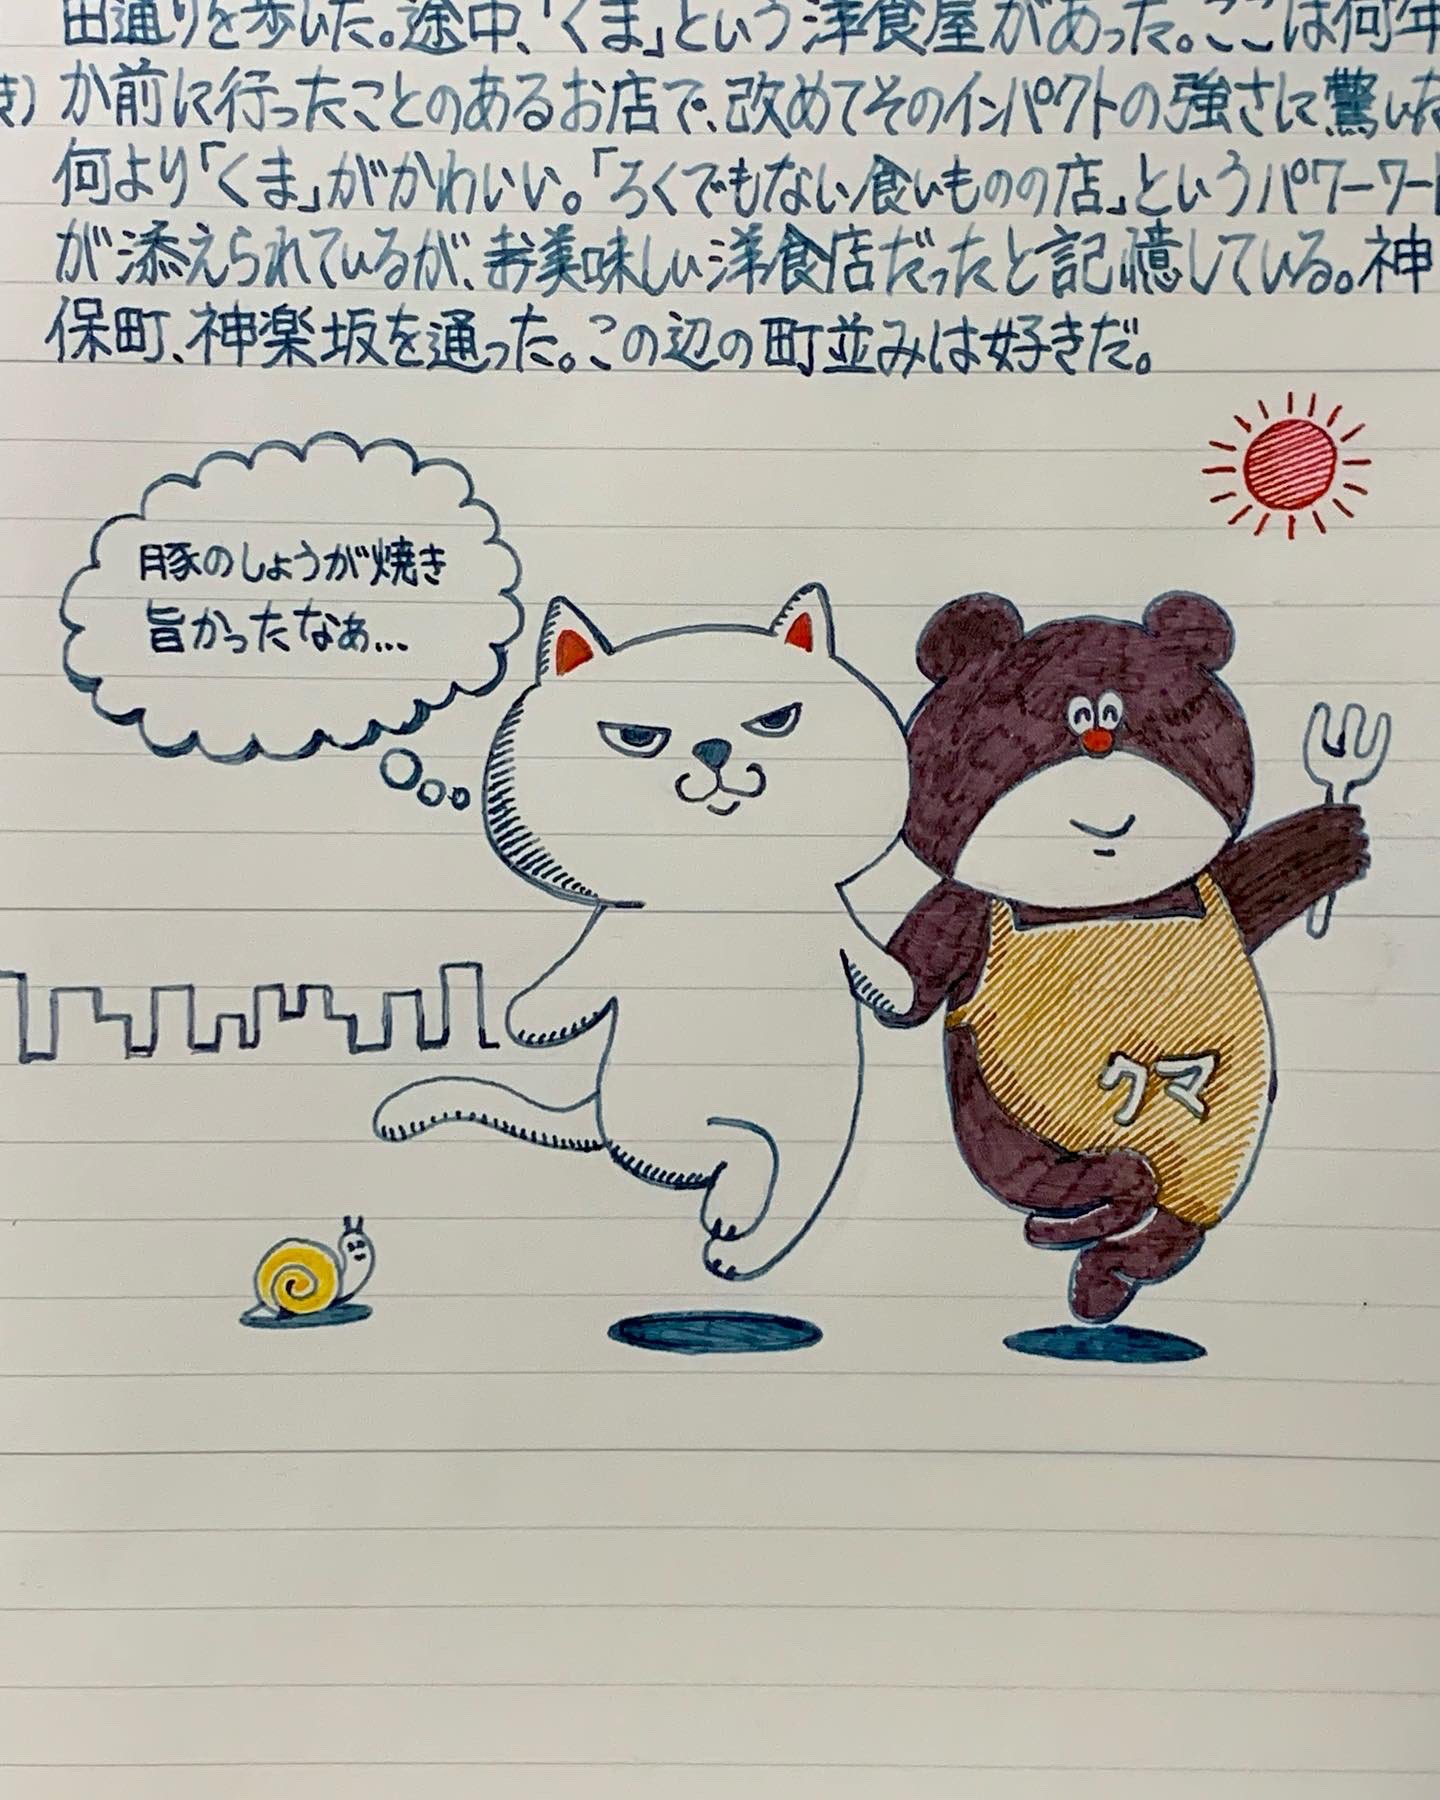 田通りを歩いた。途中、「くま」という洋食屋があった。ここは何年
き) か前に行ったことのあるお店で、改めてそのインパクトの強さに驚いた
何より「くま」がかわいい。「ろくでもない食いものの店」というパワーワード
が添えられているが、お美味しい洋食店だったと記憶している。神
保町、神楽坂を通った。この辺の町並みは好きだ。
豚のしょうが焼き
旨かったなぁ…
クマ